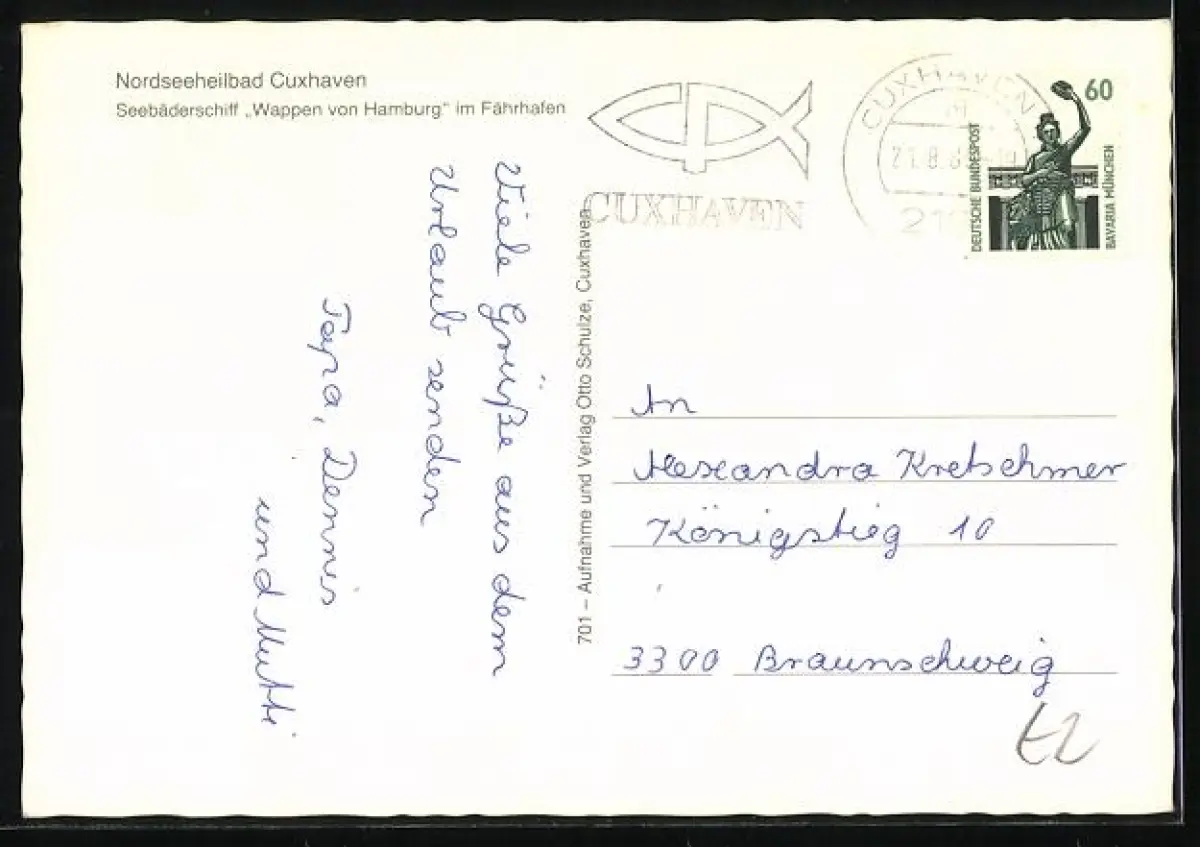 Nordseeheilbad Cuxhaven
Seebäderschiff „Wappen von Hamburg" im Fährhafen
Viele Grüße aus dem
Urlaub senden
Papa, Dennis
und Mutti
701 – Aufnahme und Verlag Otto Schulze, Cuxhaven
CUXHAVEN
CUXHAVEN
21.8.
60
DEUTSCHE BUNDESPOST
BAVARIA MÜNCHEN
An
Alexandra Kretschmer
Königstieg 10
3300 Braunschweig